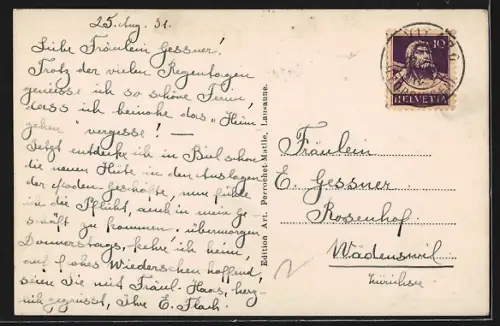 25. Aug. 31.
Liebe Fräulein Gessner!
Trotz der vielen Regentagen
geniesse ich so schöne Ferien,
dass ich beinahe das "Heim
gehen" vergesse! —
Jetzt entdeckte ich in Biel schon
die neuen Hüte in den Auslagen
der Modengeschäfte, nun fühle
ich die Pflicht, auch in mein Ge
schäft zu kommen. Übermorgen
Donnerstags, kehre ich heim,
auf frohes Wiedersehen hoffend,
seien Sie mit Fräul. Haas, herz-
lich gegrüsst, Ihre E. Flach!
Edition Art. Perrochet-Matile, Lausanne.
10
HELVETIA
Fräulein
E. Gessner
Rosenhof
Wädenswil
Zürichsee